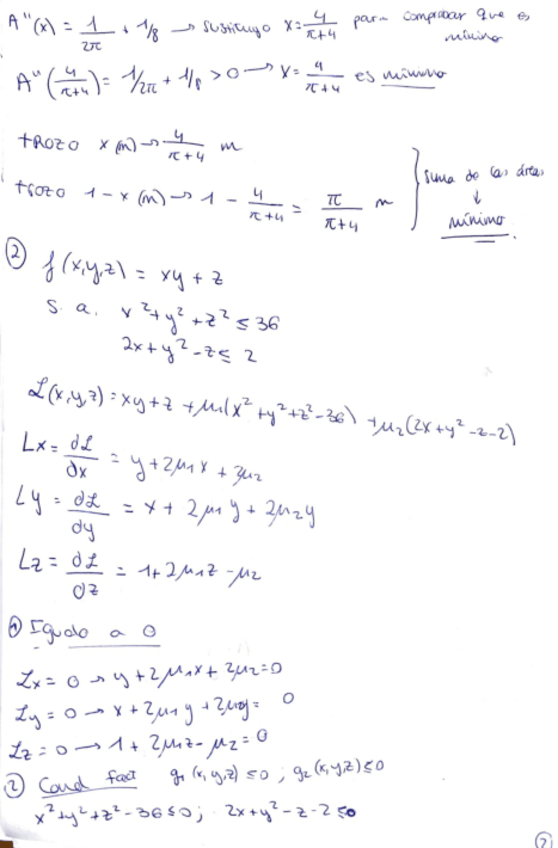 A''(x) = 1/2π + 1/8 → sustituyo x = 4/π+4 para comprobar que es mínimo
A''(4/π+4) = 1/2π + 1/8 > 0 → x = 4/π+4 es mínimo
trozo x (m) → 4/π+4 m
trozo 1-x (m) → 1 - 4/π+4 = π/π+4 m
suma de las áreas
↓
mínimo.
② f(x,y,z) = xy + z
s. a. x² + y² + z² ≤ 36
2x + y² - z ≤ 2
L(x,y,z) = xy + z + μ₁(x² + y² + z² - 36) + μ₂(2x + y² - z - 2)
Lx = dL/dx = y + 2μ₁x + 2μ₂
Ly = dL/dy = x + 2μ₁y + 2μ₂y
Lz = dL/dz = 1 + 2μ₁z - μ₂
① Igualo a 0
Lx = 0 → y + 2μ₁x + 2μ₂ = 0
Ly = 0 → x + 2μ₁y + 2μ₂y = 0
Lz = 0 → 1 + 2μ₁z - μ₂ = 0
② Cond fact g₁(x,y,z) ≤ 0 ; g₂(x,y,z) ≤ 0
x² + y² + z² - 36 ≤ 0 ; 2x + y² - z - 2 ≤ 0
②